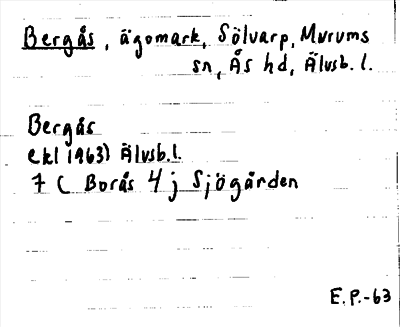 Bergås, ägomark, Sölvarp, Murums
sn, Ås hd, Älvsb. l.
Bergås
ekl 1963) Älvsb.l.
7 C Borås 4 j Sjögården
E.P.-63